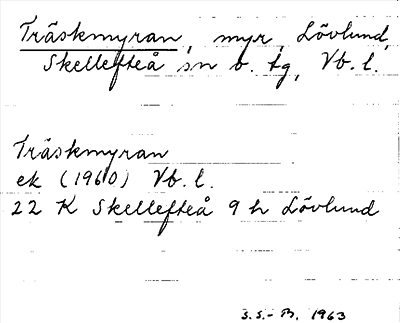 Träskmyran, myr, Lövlund,
Skellefteå sn o. tg, Vb. l.
Träskmyran
ek (1960) Vb. l.
22 K Skellefteå 9 h Lövlund
S.S.-B. 1963